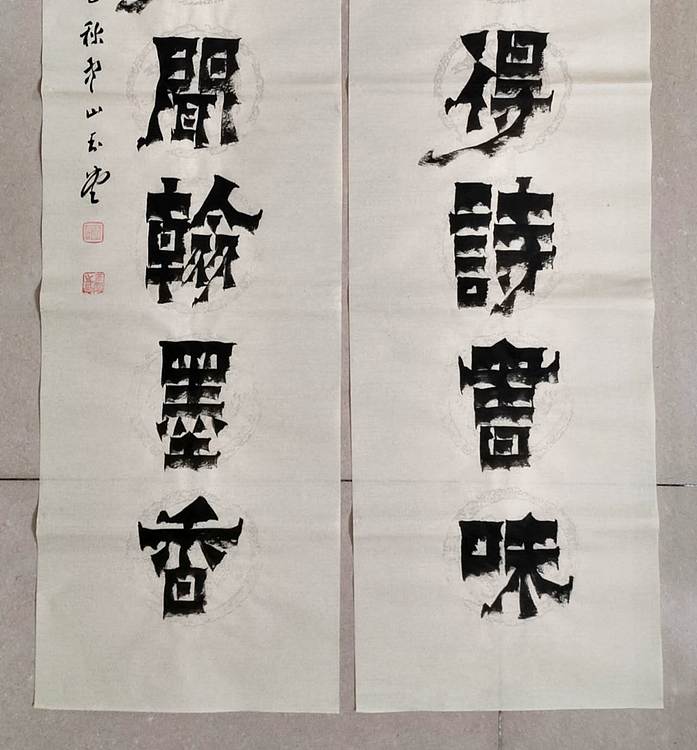 得詩書味
聞翰墨香
秋 山